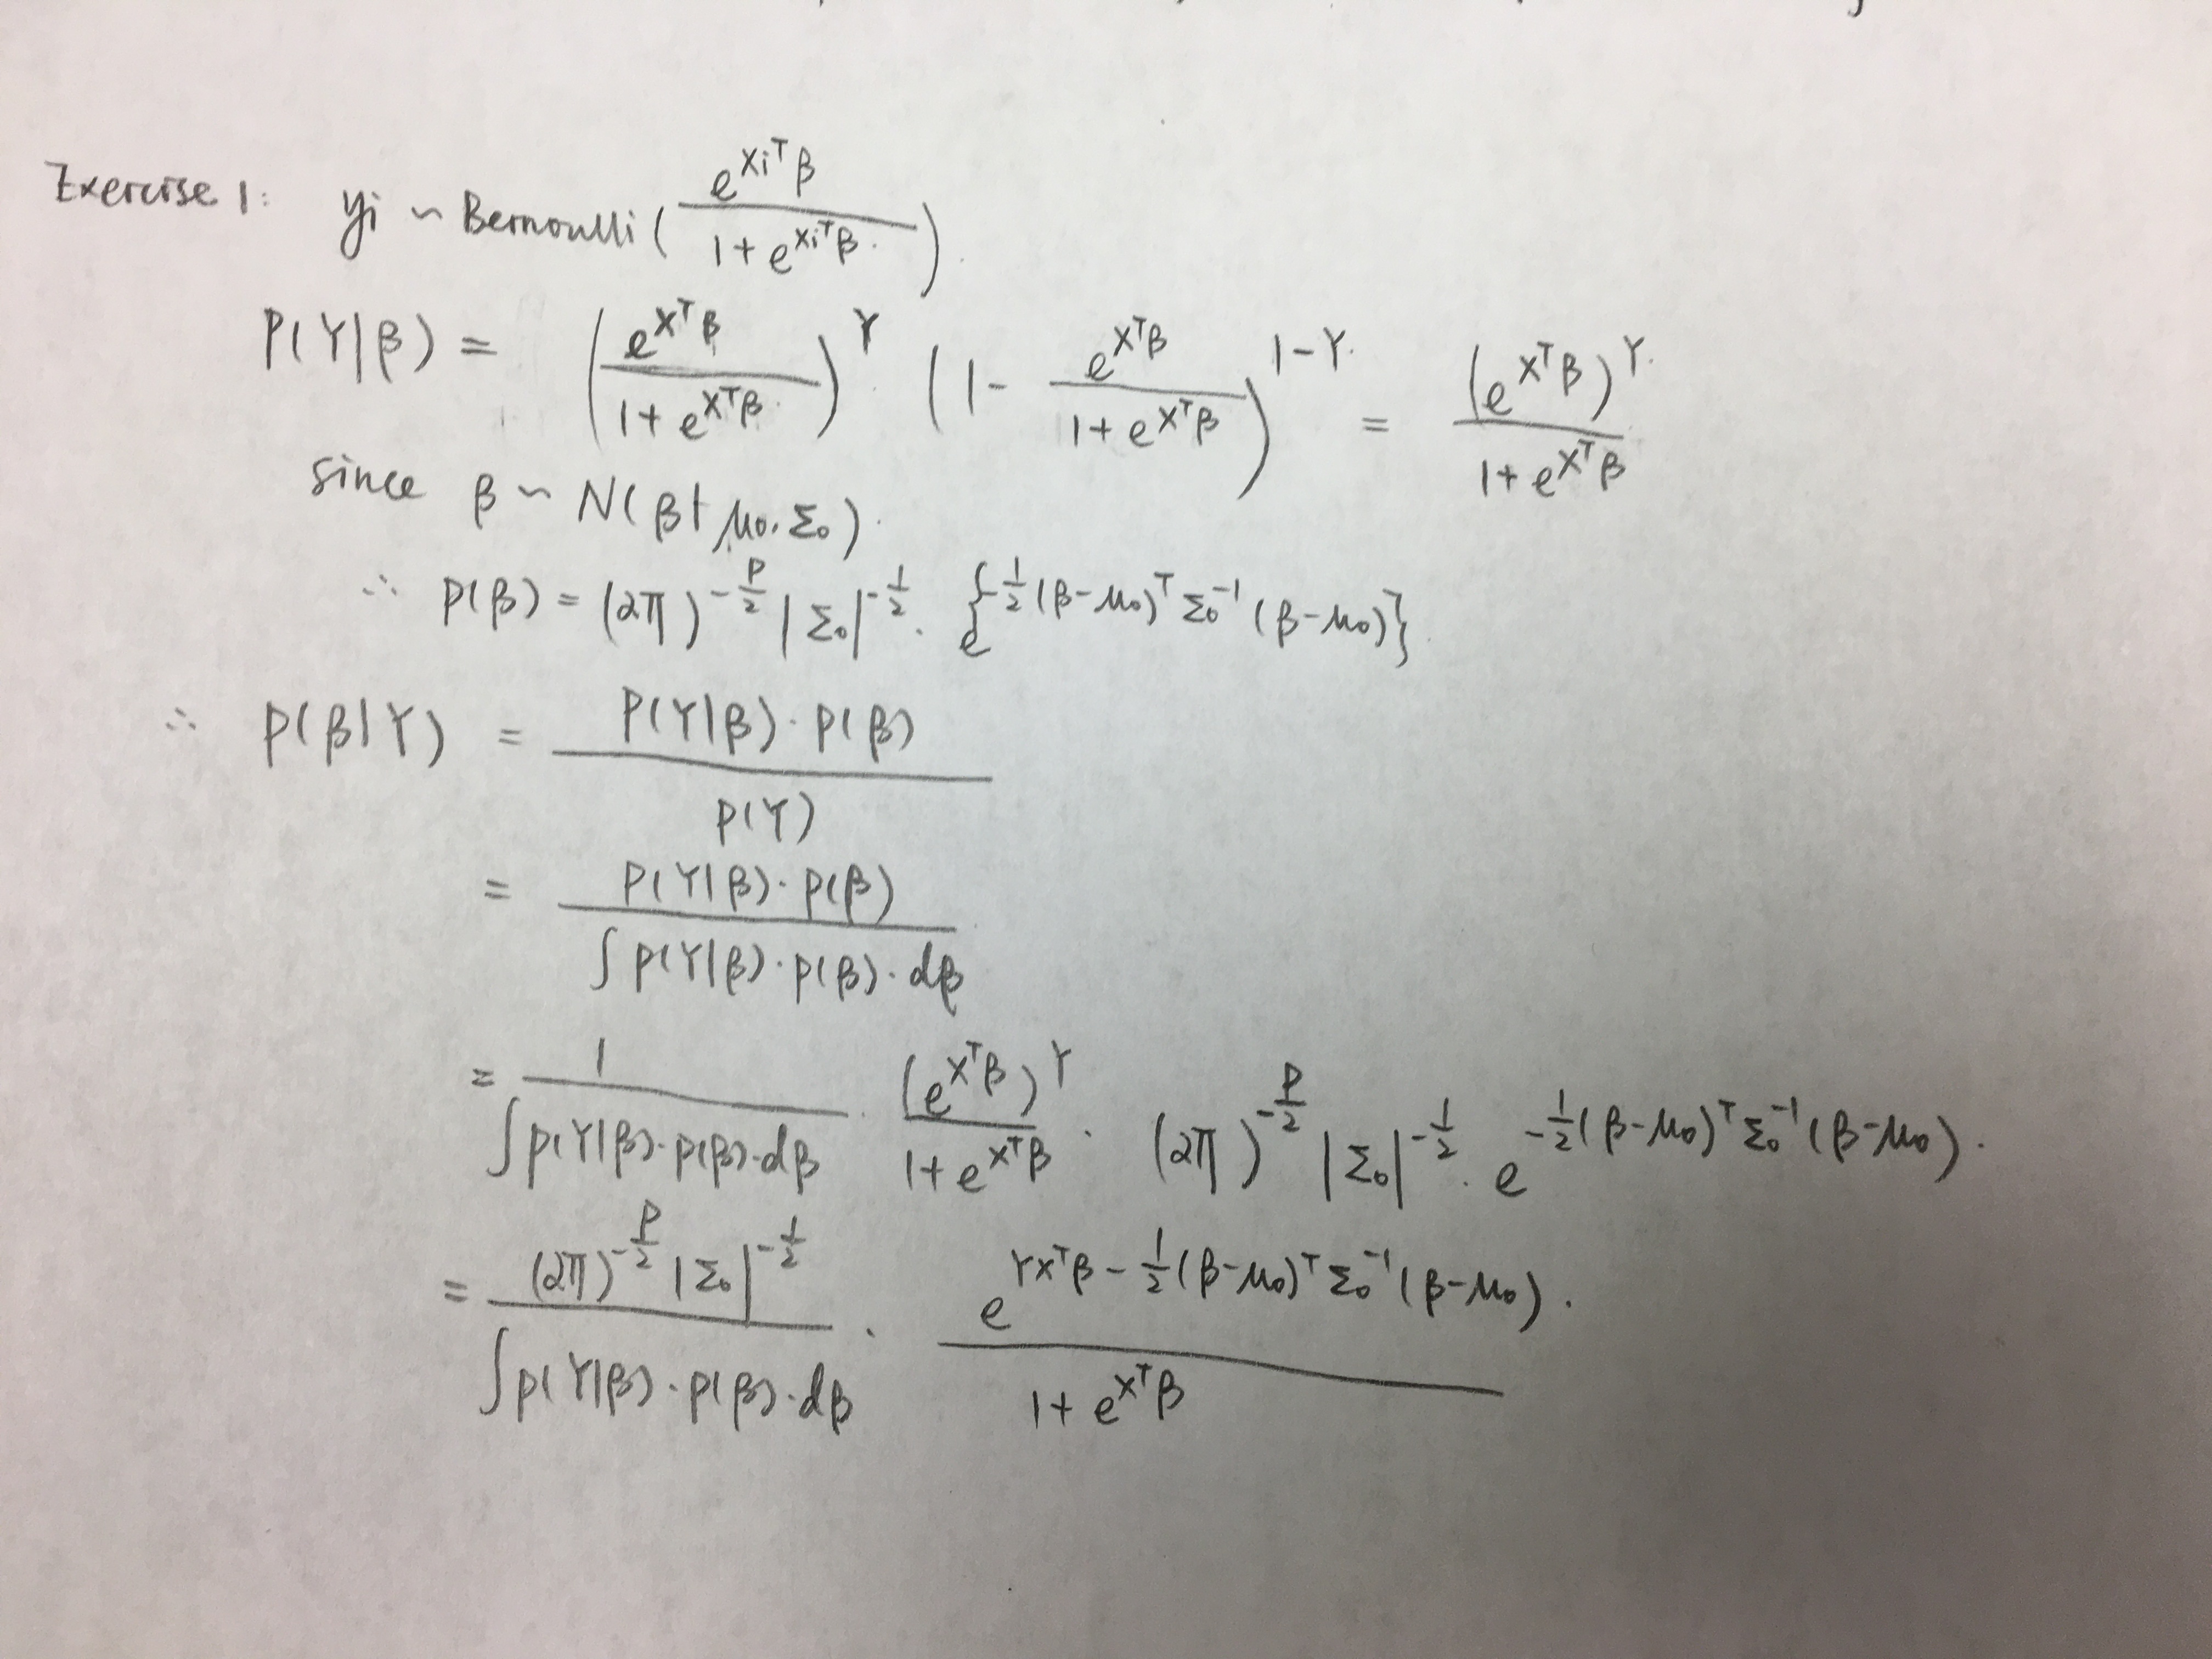 Exercise 1: yi ~ Bernoulli ( e^{Xi^T β} / (1 + e^{Xi^T β}) ).
P(Y|β) = ( e^{X^T β} / (1 + e^{X^T β}) )^Y · ( 1 - e^{X^T β} / (1 + e^{X^T β}) )^{1-Y} = (e^{X^T β})^Y / (1 + e^{X^T β})
since β ~ N(β | μ₀, Σ₀).
∴ P(β) = (2π)^{-p/2} |Σ₀|^{-1/2} · e^{{-1/2 (β-μ₀)^T Σ₀^{-1} (β-μ₀)}}.
∴ P(β|Y) = P(Y|β) · P(β) / P(Y)
= P(Y|β) · P(β) / ∫ P(Y|β) · P(β) · dβ
= 1 / ∫ P(Y|β) · P(β) · dβ · (e^{X^T β})^Y / (1 + e^{X^T β}) · (2π)^{-p/2} |Σ₀|^{-1/2} · e^{-1/2 (β-μ₀)^T Σ₀^{-1} (β-μ₀)}.
= (2π)^{-p/2} |Σ₀|^{-1/2} / ∫ P(Y|β) · P(β) · dβ · e^{YX^T β - 1/2 (β-μ₀)^T Σ₀^{-1} (β-μ₀)} / (1 + e^{X^T β})